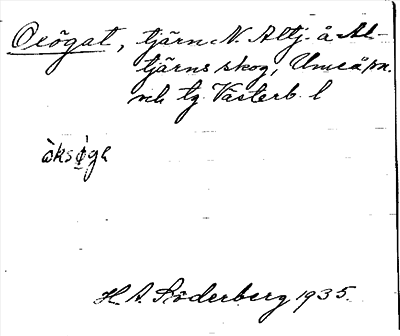 Oxögat, tjärn N. Altj. å Al-
tjärns skog, Umeå sn.
och tg. Västerb. l
òksǿge
H. A. Söderberg 1935.